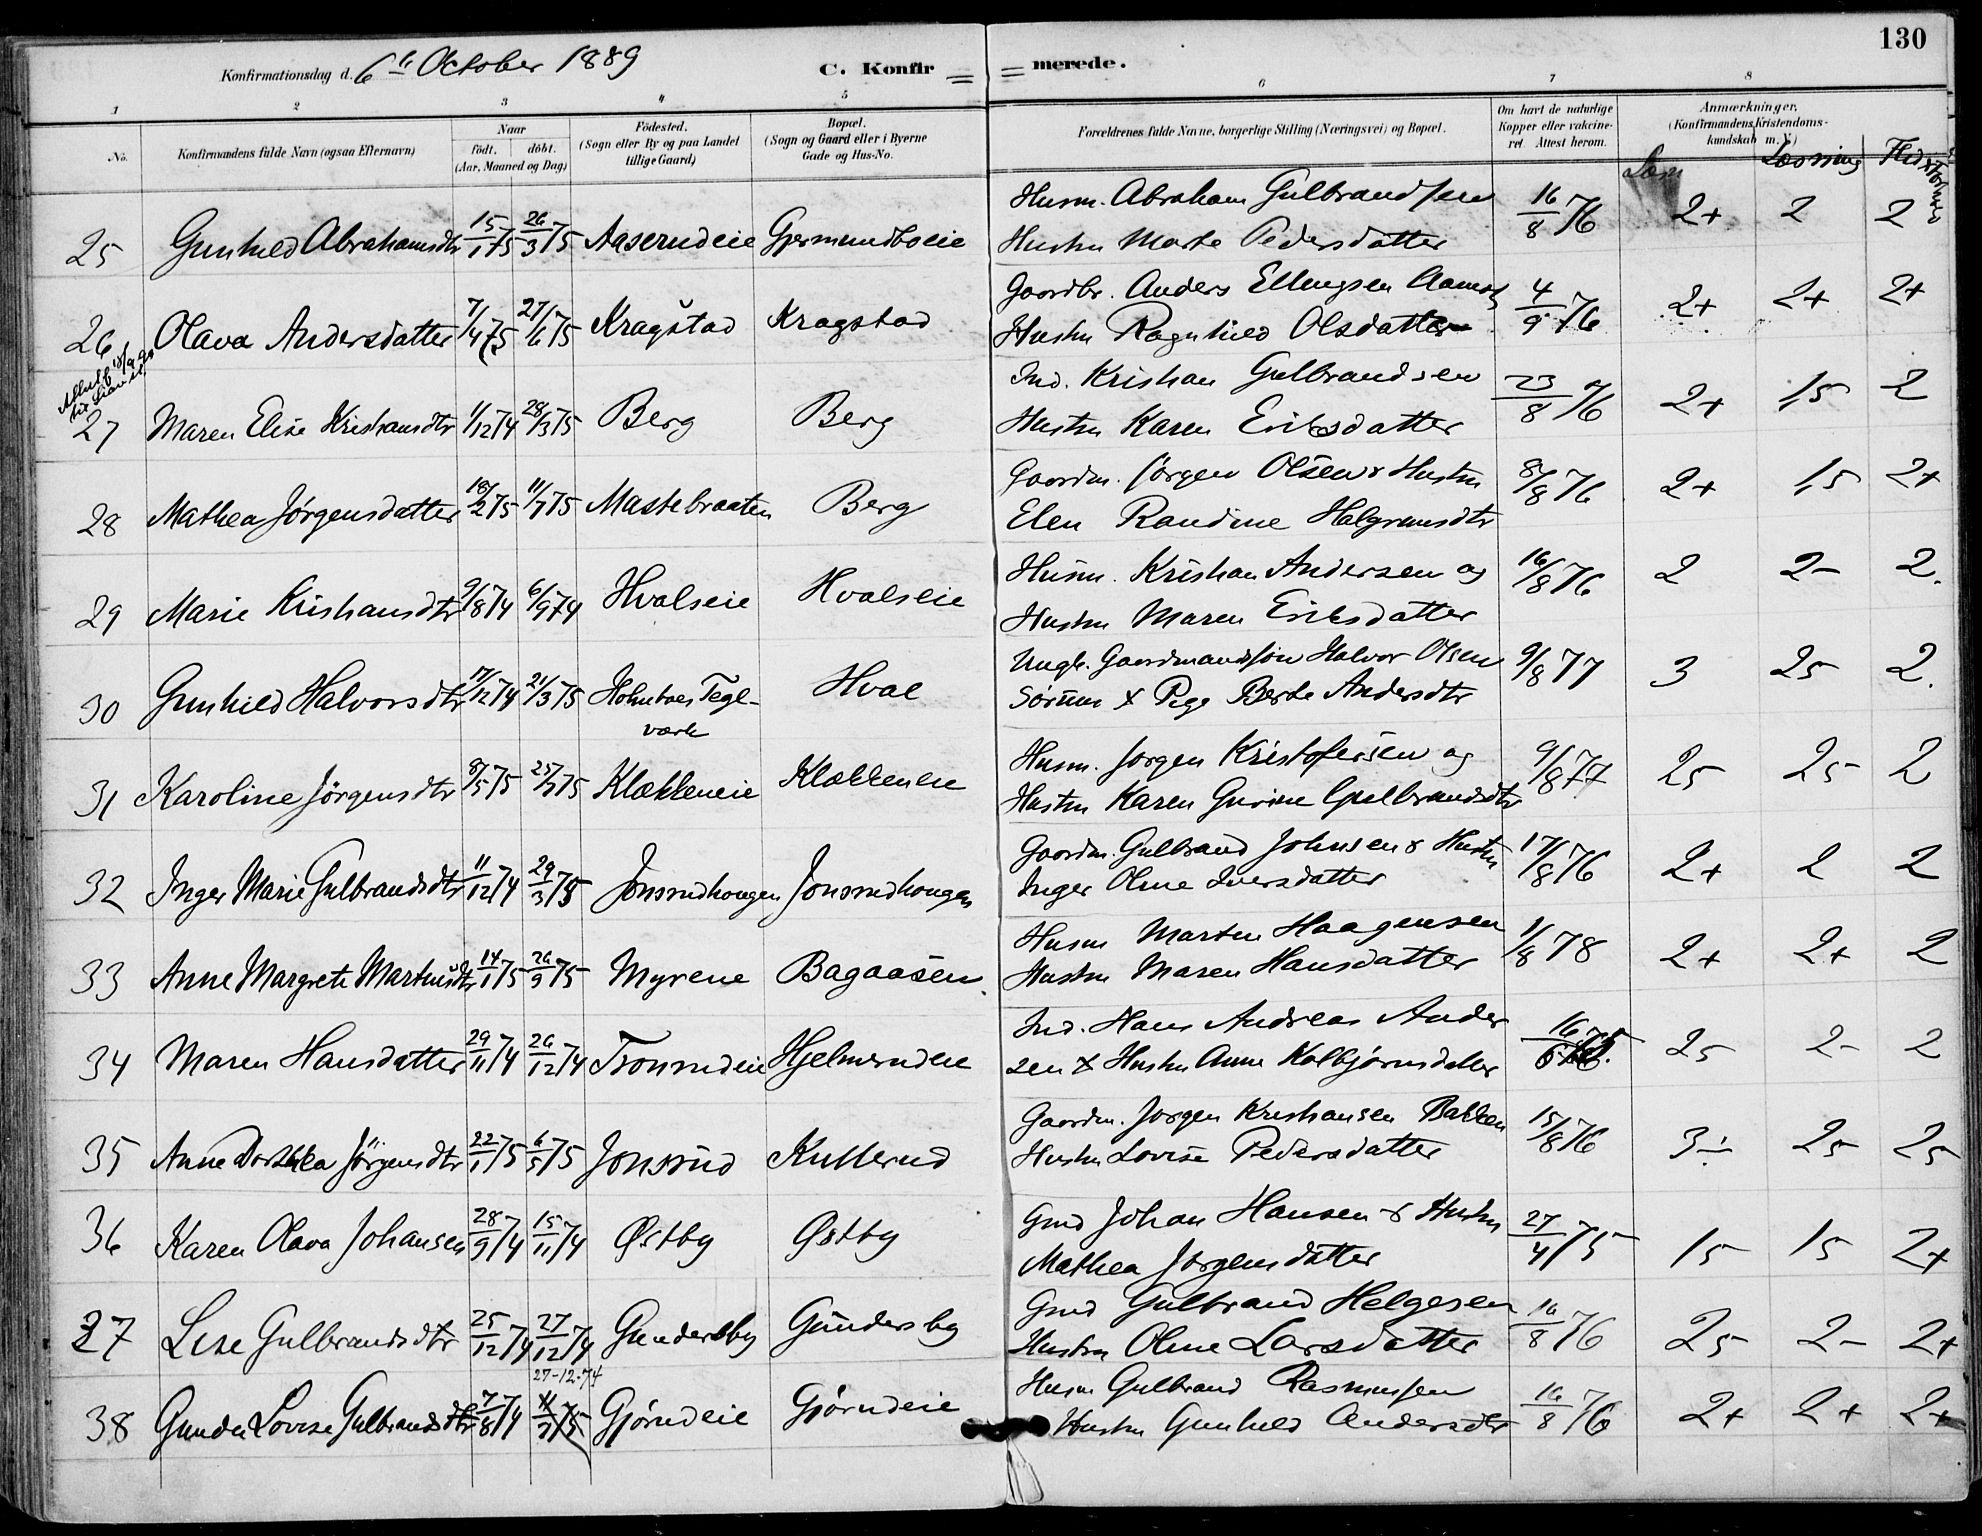 130
Konfirmationsdag d. 6te October 1889 C. Konfir = = merede.
1 2 3 4 5 6 7 8
No. Konfirmandens fulde Navn (ogsaa Efternavn) Naar født, døbt. (Aar, Maaned og Dag) Födested. (Sogn eller By og paa Landet tillige Gaard) Bopæl. (Sogn og Gaard eller i Byerne Gade og Hus-No. Forældrenes fulde Navne, borgerlige Stilling (Næringsvei) og Bopæl. Om havt de naturlige Kopper eller vakcineret. Attest herom. Anmærkninger, (Konfirmandens Kristendomskundskab m. V.)
Læsning Flid
25 Gunhild Abrahamsdtr 15/1 75 26/3 75 Aaserudeie Gjermundboeie Husm. Abraham Gulbrandsen 16/8 76 2+ 2 2
Hustru Marte Pedersdatter
26 Olava Andersdatter 7/4 75 27/6 75 Kragstad Kragstad Gaardbr. Anders Ellingsen 4/9 76 2+ 2+ 2+
Hustru Ragnhild Olsdatter
27 Maren Elise Kristiansdtr 1/12 74 28/3 75 Berg Berg Ind. Kristian Gulbrandsen 23/8 76 2+ 15 2
Hustru Karen Eriksdatter
28 Mathea Jørgensdatter 18/2 75 11/7 75 Mastebraaten Berg Gaardm. Jørgen Olsen & Hustru 8/8 76 2+ 15 2+
Elen Randine Halgrimsdtr
29 Marie Kristiansdtr 9/8 74 6/9 74 Hvalseie Hvalseie Husm. Kristian Andersen og 16/8 76 2 2- 2.
Hustru Maren Eriksdatter
30 Gunhild Halvorsdtr 17/12 74 21/3 75 Holmtoes Tegl- Hval Ungk. Gaardmandssøn Halvor Olsen 9/8 77 3 25 2.
værk Sørum & Pige Berte Andersdtr
31 Karoline Jørgensdtr 8/5 75 25/7 75 Klækkeneie Klækkeneie Husm. Jørgen Kristofersen og 9/8 77 25 25 2
Hustru Karen Gurine Gulbrandsdtr
32 Inger Marie Gulbrandsdtr 11/12 74 29/3 75 Jonsrudhougen Jonsrudhougen Gaardm. Gulbrand Johnsen & Hustru 17/8 76 2+ 2 2
Inger Oline Iversdatter
33 Anne Margrete Martinsdtr 14/1 75 26/9 75 Myrene Bagaasen. Husm Martin Haagensen 1/8 78 2+ 2+ 2
Hustru Maren Hansdatter
34 Maren Hansdatter 29/11 74 26/12 74 Tronrudeie Hjelmerudeie Ind. Hans Andreas Ander 25 2- 2
sen & Hustru Anne Kolbjørnsdatter
35 Anne Dorthea Jörgensdtr 22/1 75 6/5 75 Jonsrud Kullerud Gaardm. Jørgen Kristiansen Bakken 15/8 76 3- 25 25
Hustru Lovise Pedersdatter
36 Karen Olava Johansen 28/9 74 15/11 74 Østby Østby Gmd Johan Hansen & Hustru 27/4 75 15 15 2+
Mathea Jørgensdatter
37 Lise Gulbrandsdtr 25/12 74 27/12 74 Gundersby Gundersby Gmd Gulbrand Helgesen 16/8 76 25 2- 2+
Hustru Oline Larsdatter
27-12-74
38 Gunda Lovise Gulbrandsdtr 7/8 74 Gjørudeie Gjørudeie Husm Gulbrand Rasmussen 16/8 76 2+ 2+ 2+
Hustru Gunhild Andersdtr